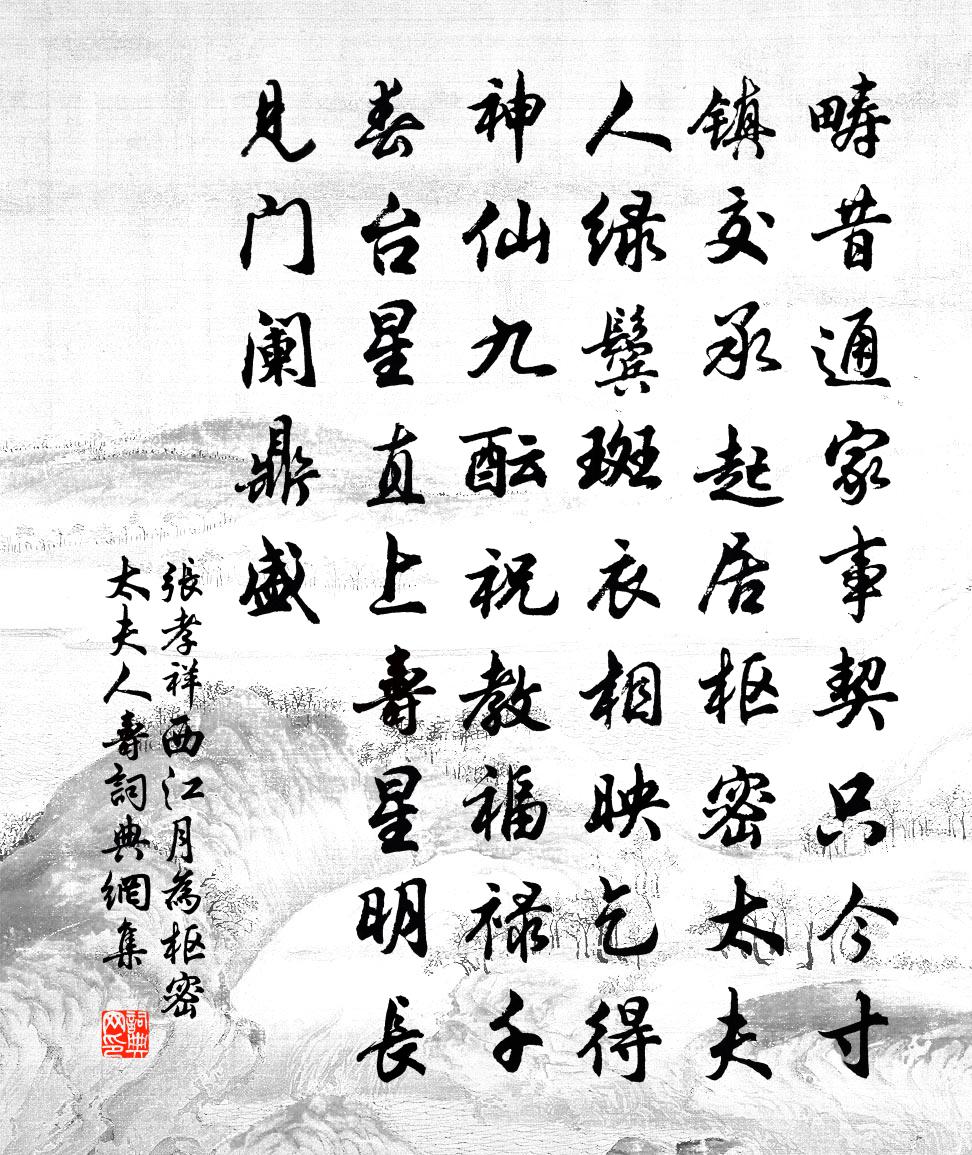 畴昔通家事契只今寸
镇交承起居枢密太夫
人绿鬓斑衣相映乞得
神仙九酝祝教福禄千
春台星直上寿星明长
见门阑鼎盛
張孝祥西江月為枢密
太夫人壽詞典網集
詞典网印